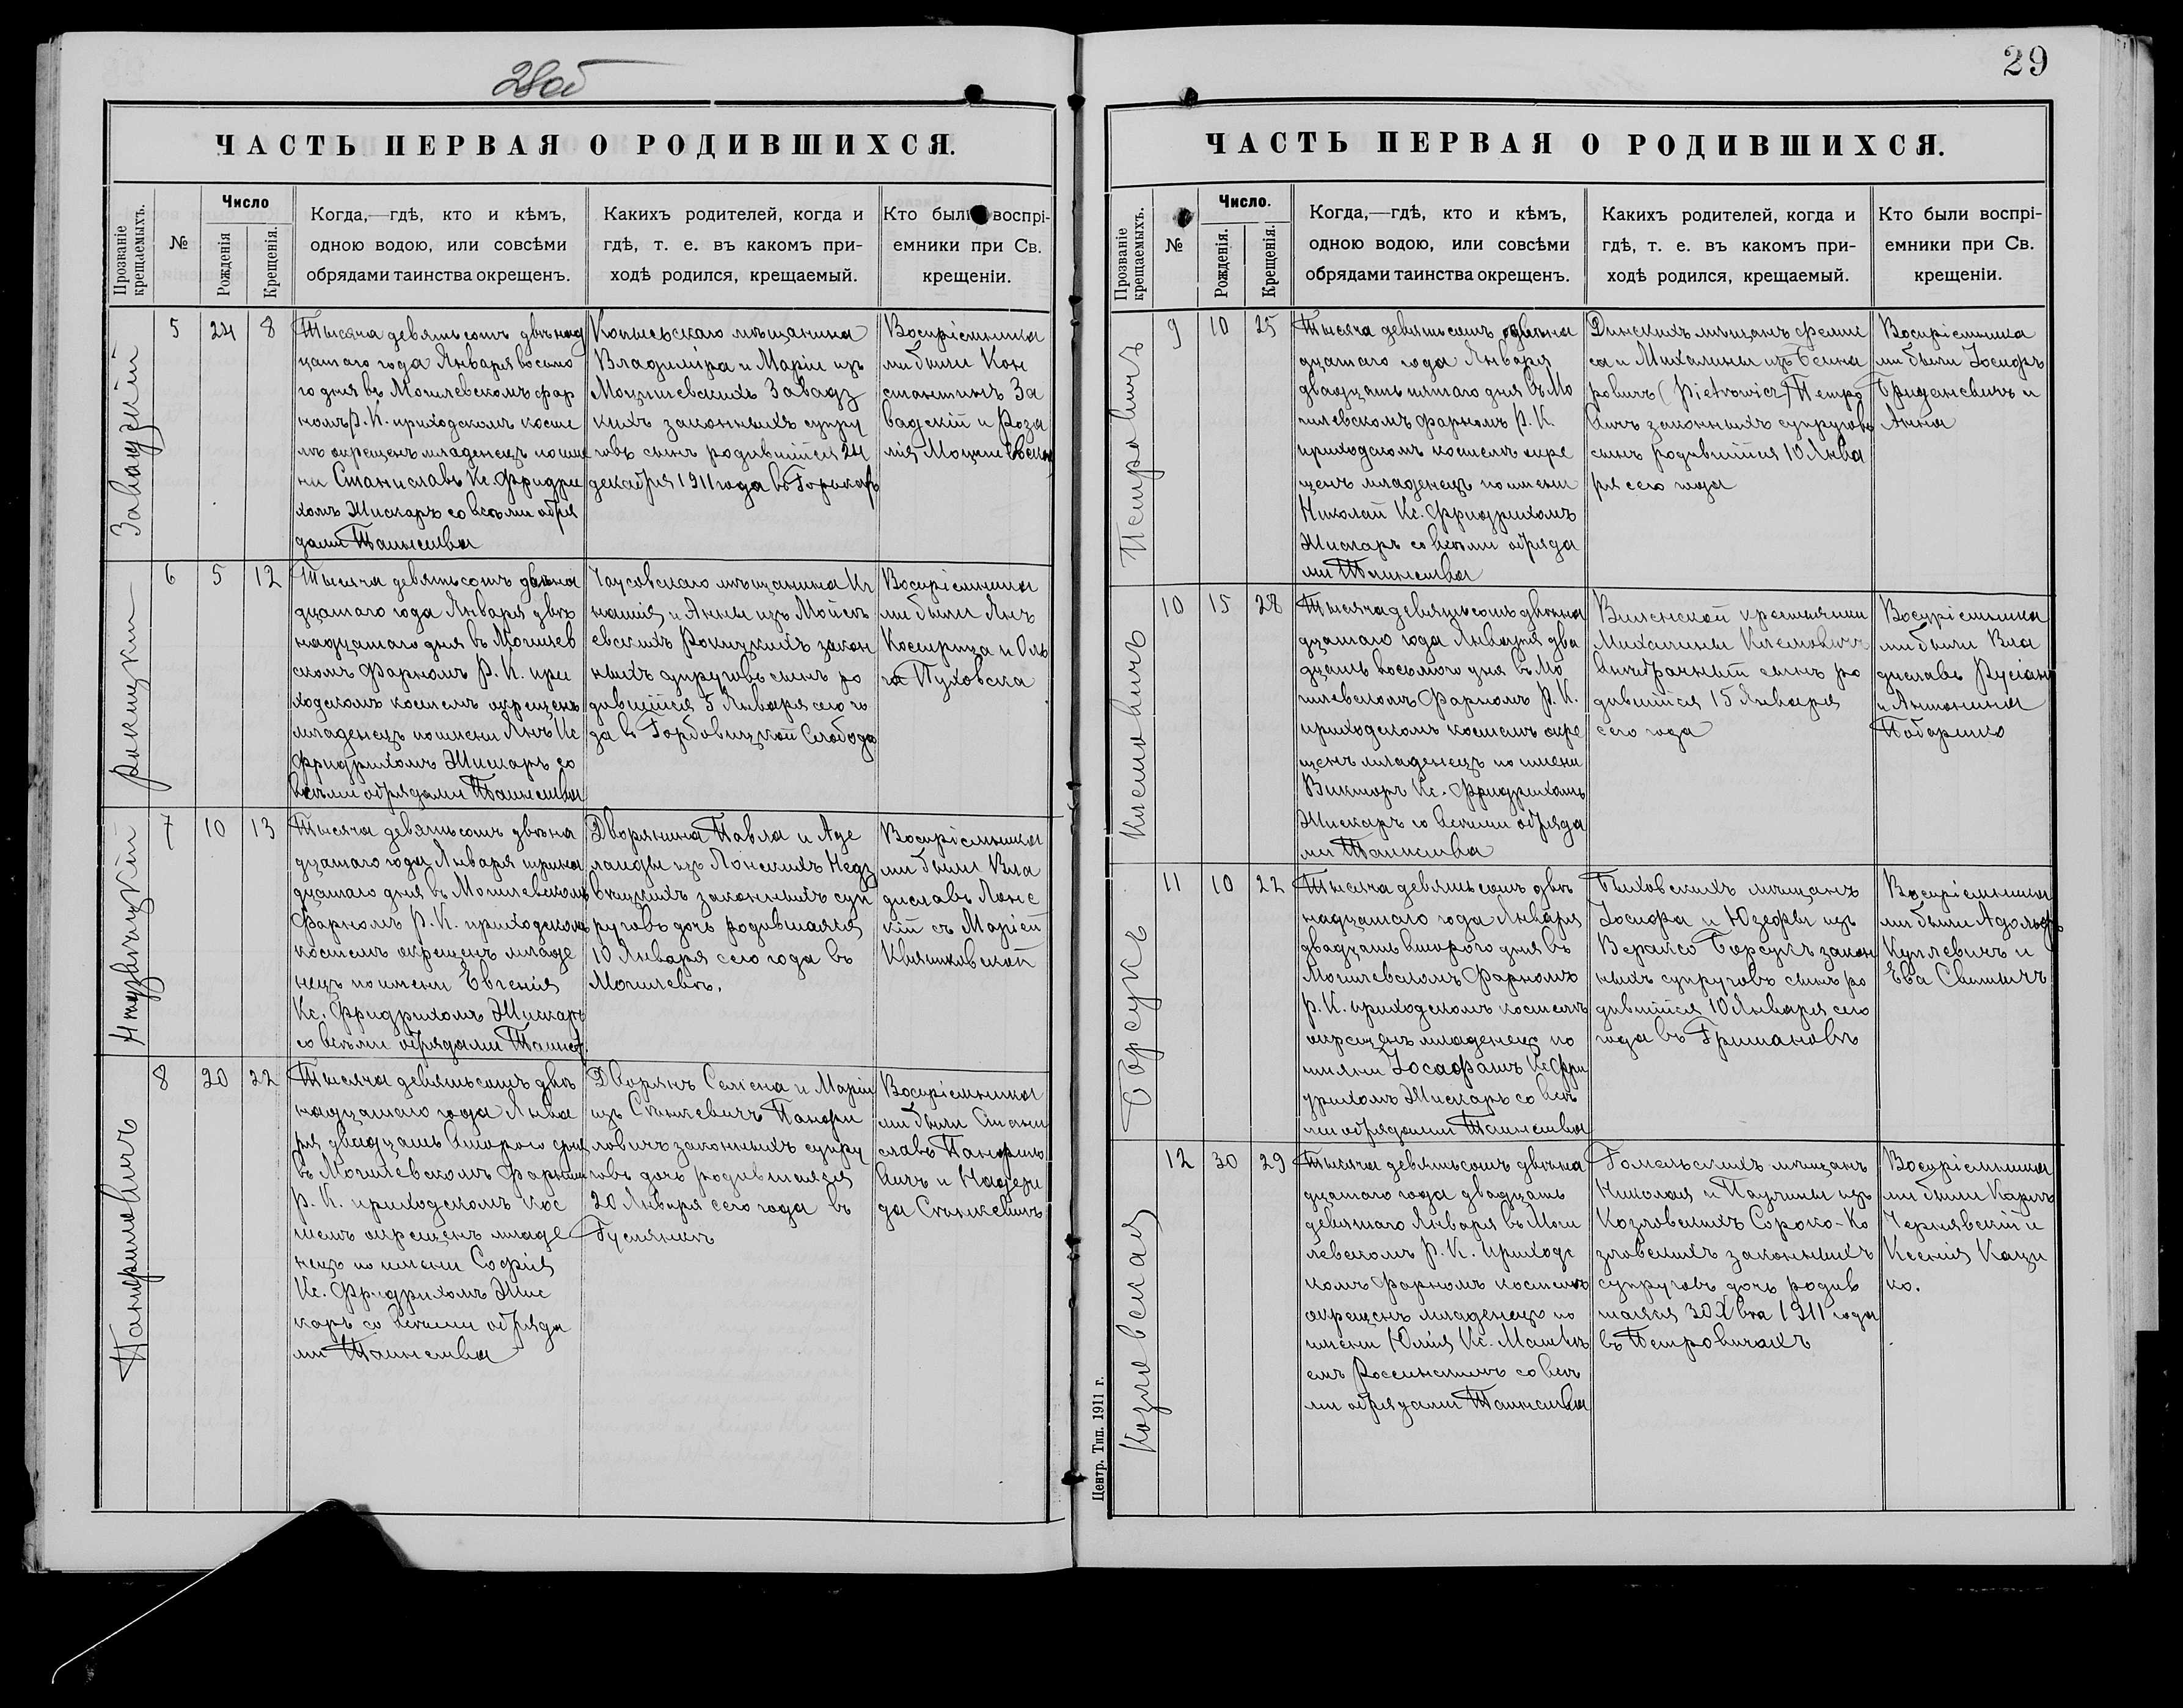 28об
ЧАСТЬ ПЕРВАЯ О РОДИВШИХСЯ.
Прозваніе крещаемыхъ.
№
Число
Рожденія
Крещенія.
Когда,—гдѣ, кто и кѣмъ,
одною водою, или совсѣми
обрядами таинства окрещенъ.
Какихъ родителей, когда и
гдѣ, т. е. въ какомъ при-
ходѣ родился, крещаемый.
Кто были воспрі-
емники при Св.
крещеніи.
Завадзкій
5
24
8
Тысяча девятьсотъ двѣнад
цатаго года Января восьма
го дня въ Могилевскомъ фар
номъ Р. К. приходскомъ косте
лѣ окрещенъ младенецъ по име
ни Станиславъ Кс. Фридри
хомъ Жискаръ со всѣми обря
дами Таинства
Копысьскаго мѣщанина
Владиміра и Маріи изъ
Завадз
кихъ законныхъ супру
говъ сынъ родившійся 24
декабря 1911 года въ Горкахъ
Воспріемника
ми были Кон
стантинъ За
вадскій и Роза
лія
Рокицкій
6
5
12
Тысяча девятьсотъ двѣна
дцатаго года Января двѣ
надцатаго дня въ Могилев
скомъ Фарномъ Р. К. при
ходскомъ костелѣ окрещенъ
младенецъ по имени Янъ Кс
Фридрихомъ Жискаръ со
всѣми обрядами Таинства
Чаусовскаго мѣщанина Иг
натія и Анны изъ Мойсѣ
евскихъ Рокицкихъ закон
ныхъ супруговъ сынъ ро
дившійся 5 Января сего го
да въ Горбовицкой Слободѣ
Воспріемника
ми были Янъ
Кострица и Оль
га Пуховска
7
10
13
Тысяча девятьсотъ двѣна
дцатаго года Января трина
дцатаго дня въ Могилевскомъ
Фарномъ Р. К. приходскомъ
костелѣ окрещенъ младе
нецъ по имени Евгенія
Кс. Фридрихомъ Жискаръ
со всѣми обрядами Таинст.
Дворянина Павла и Аде
лаиды изъ Лонскихъ Недз
вѣцкихъ законныхъ суп
руговъ дочь родившаяся
10 Января сего года въ
Могилевѣ.
Воспріемника
ми были Вла
диславъ Лонс
кій съ Маріей
Квятковской
Панфиловичъ
8
20
22
Тысяча девятьсотъ двѣ
надцатаго года Янва
ря двадцать второго дня
въ Могилевскомъ Фарномъ
Р. К. приходскомъ кос
телѣ окрещенъ младе
нецъ по имени Софія
Кс. Фридрихомъ Жис
каръ со всѣми обряда
ми Таинства
Дворянъ Семена и Маріи
изъ Станкевичъ Панфи
ловичъ законныхъ супру
говъ дочь родившаяся
20 Января сего года въ
Воспріемника
ми были Стани
славъ Панфило
вичъ и Надеж
да Станкевичъ
29
ЧАСТЬ ПЕРВАЯ О РОДИВШИХСЯ.
Прозваніе крещаемыхъ.
№
Число.
Рожденія.
Крещенія.
Когда,—гдѣ, кто и кѣмъ,
одною водою, или совсѣми
обрядами таинства окрещенъ.
Какихъ родителей, когда и
гдѣ, т. е. въ какомъ при-
ходѣ родился, крещаемый.
Кто были воспрі-
емники при Св.
крещеніи.
Петровичъ
9
10
25
Тысяча девятьсотъ двѣна
дцатаго года Января
двадцать пятаго дня въ Мо
гилевскомъ фарномъ Р. К.
приходскомъ костелѣ окре
щенъ младенецъ по имени
Николай Кс. Фридрихомъ
Жискаръ со всѣми обряда
ми Таинства
мѣщанъ
и Михалины изъ
(Pietrowicz) Петро
вичъ законныхъ супруговъ
сынъ родившійся 10 Янва
ря сего года
Воспріемника
ми были Іосифъ
и
Анна
10
15
28
Тысяча девятьсотъ двѣна
дцатаго года Января два
дцать восьмого дня въ Мо
гилевскомъ Фарномъ Р. К.
приходскомъ костелѣ окре
щенъ младенецъ по имени
Викторъ Кс. Фридрихомъ
Жискаръ со всѣми обряда
ми Таинства
Виленской крестьянки
Михалины
внѣбрачный сынъ ро
дившійся 15 Января
сего года
Воспріемника
ми были Вла
диславъ
и Антонина
Борсукъ
11
10
22
Тысяча девятьсотъ двѣ
надцатаго года Января
двадцать второго дня въ
Могилевскомъ Фарномъ
Р. К. приходскомъ костелѣ
окрещенъ младенецъ по
имени Іосафатъ Кс. Фри
дрихомъ Жискаръ со всѣ
ми обрядами Таинства
Быховскихъ мѣщанъ
Іосифа и Юзефы изъ
Борсукъ закон
ныхъ супруговъ сынъ ро
дившійся 10 Января сего
года въ Гришановѣ
Воспріемника
ми были Адольфъ
и
Ева
Козловская
12
30
29
Тысяча девятьсотъ двѣна
дцатаго года двадцать
девятаго Января въ Моги
левскомъ Р. К. приходс
комъ Фарномъ костелѣ
окрещенъ младенецъ по
имени Юлія Кс. Матвѣ
емъ со всѣ
ми обрядами Таинства
Гомельскихъ мѣщанъ
Николая и Паулины изъ
Козловскихъ Сороко-Ко
зловскихъ законныхъ
супруговъ дочь родив
шаяся 30 Хвтя 1911 года
въ Петровичахъ
Воспріемника
ми были Карлъ
Чернявскій и
Ксенія Каци
ко.
Центр. Тип. 1911 г.